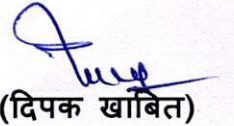 (दिपक खांबित)